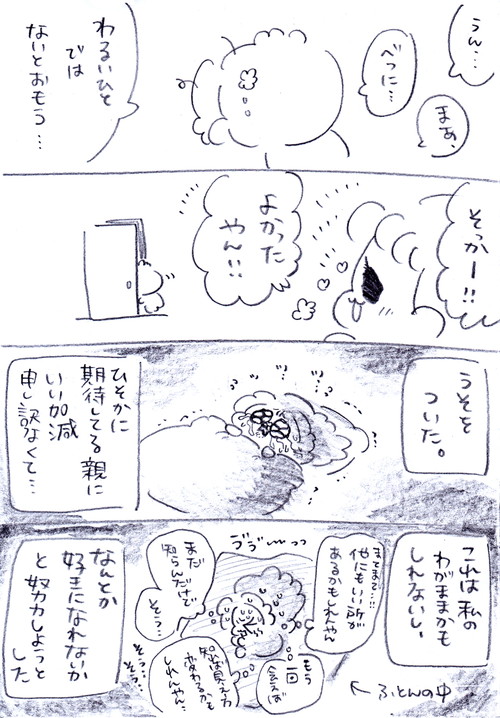 うん…
べつに…
まあ、
わるいひと
では
ないとおもう…
そっかー!!
よかった
やん!!
うそを
ついた。
ひそかに
期待してる親に
いい加減
申し訳なくて…
これは私の
わがままかも
しれないし
まてまる…!!
他にもいい所が
あるかもしれんやん
ヴヴ〜ーっっ
まだ
知らんだけで
そう…
もう
一回
会えば
変わるかも
しれんやん…
そう…
そう…
←ふとんの中
なんとか
好きになれないか
と努力しようと
した